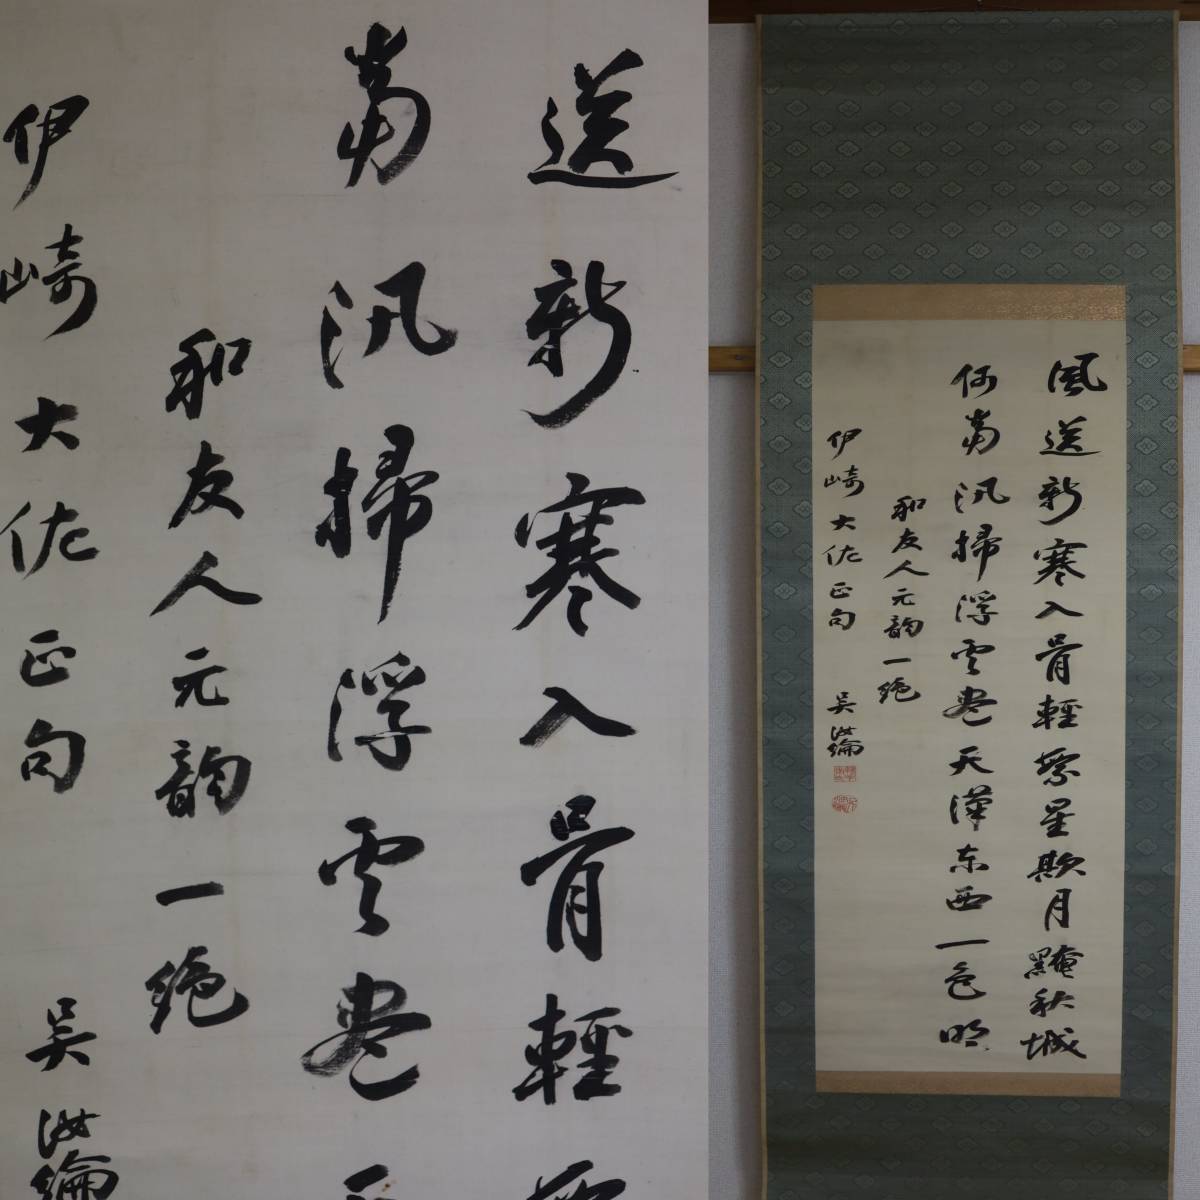 風送新寒入骨輕繁星欺月黤秋城
何當汛掃浮雲盡天漢東西一色明
和友人元韵一絶
伊崎大佐正句 吳汝綸
送新寒入骨輕
當汛掃浮雲盡
和友人元韵一絶
伊崎大佐正句 吳汝綸